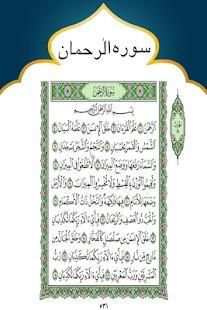 سورة الرحمان
سُورَةُ الرَّحْمَٰن
بِسْمِ اللَّهِ الرَّحْمَٰنِ الرَّحِيمِ
الرَّحْمَٰنُ ١ عَلَّمَ الْقُرْآنَ ٢ خَلَقَ الْإِنسَانَ ٣ عَلَّمَهُ الْبَيَانَ ٤
الشَّمْسُ وَالْقَمَرُ بِحُسْبَانٍ ٥ وَالنَّجْمُ وَالشَّجَرُ يَسْجُدَانِ ٦
وَالسَّمَاءَ رَفَعَهَا وَوَضَعَ الْمِيزَانَ ٧ أَلَّا تَطْغَوْا فِي الْمِيزَانِ ٨
وَأَقِيمُوا الْوَزْنَ بِالْقِسْطِ وَلَا تُخْسِرُوا الْمِيزَانَ ٩ وَالْأَرْضَ
وَضَعَهَا لِلْأَنَامِ ١٠ فِيهَا فَاكِهَةٌ وَالنَّخْلُ ذَاتُ الْأَكْمَامِ ١١
وَالْحَبُّ ذُو الْعَصْفِ وَالرَّيْحَانُ ١٢ فَبِأَيِّ آلَاءِ رَبِّكُمَا تُكَذِّبَانِ
١٣ خَلَقَ الْإِنسَانَ مِن صَلْصَالٍ كَالْفَخَّارِ ١٤ وَخَلَقَ الْجَانَّ مِن
مَّارِجٍ مِّن نَّارٍ ١٥ فَبِأَيِّ آلَاءِ رَبِّكُمَا تُكَذِّبَانِ ١٦
رَبُّ الْمَشْرِقَيْنِ وَرَبُّ الْمَغْرِبَيْنِ ١٧ فَبِأَيِّ آلَاءِ رَبِّكُمَا تُكَذِّبَانِ ١٨
٥٣١